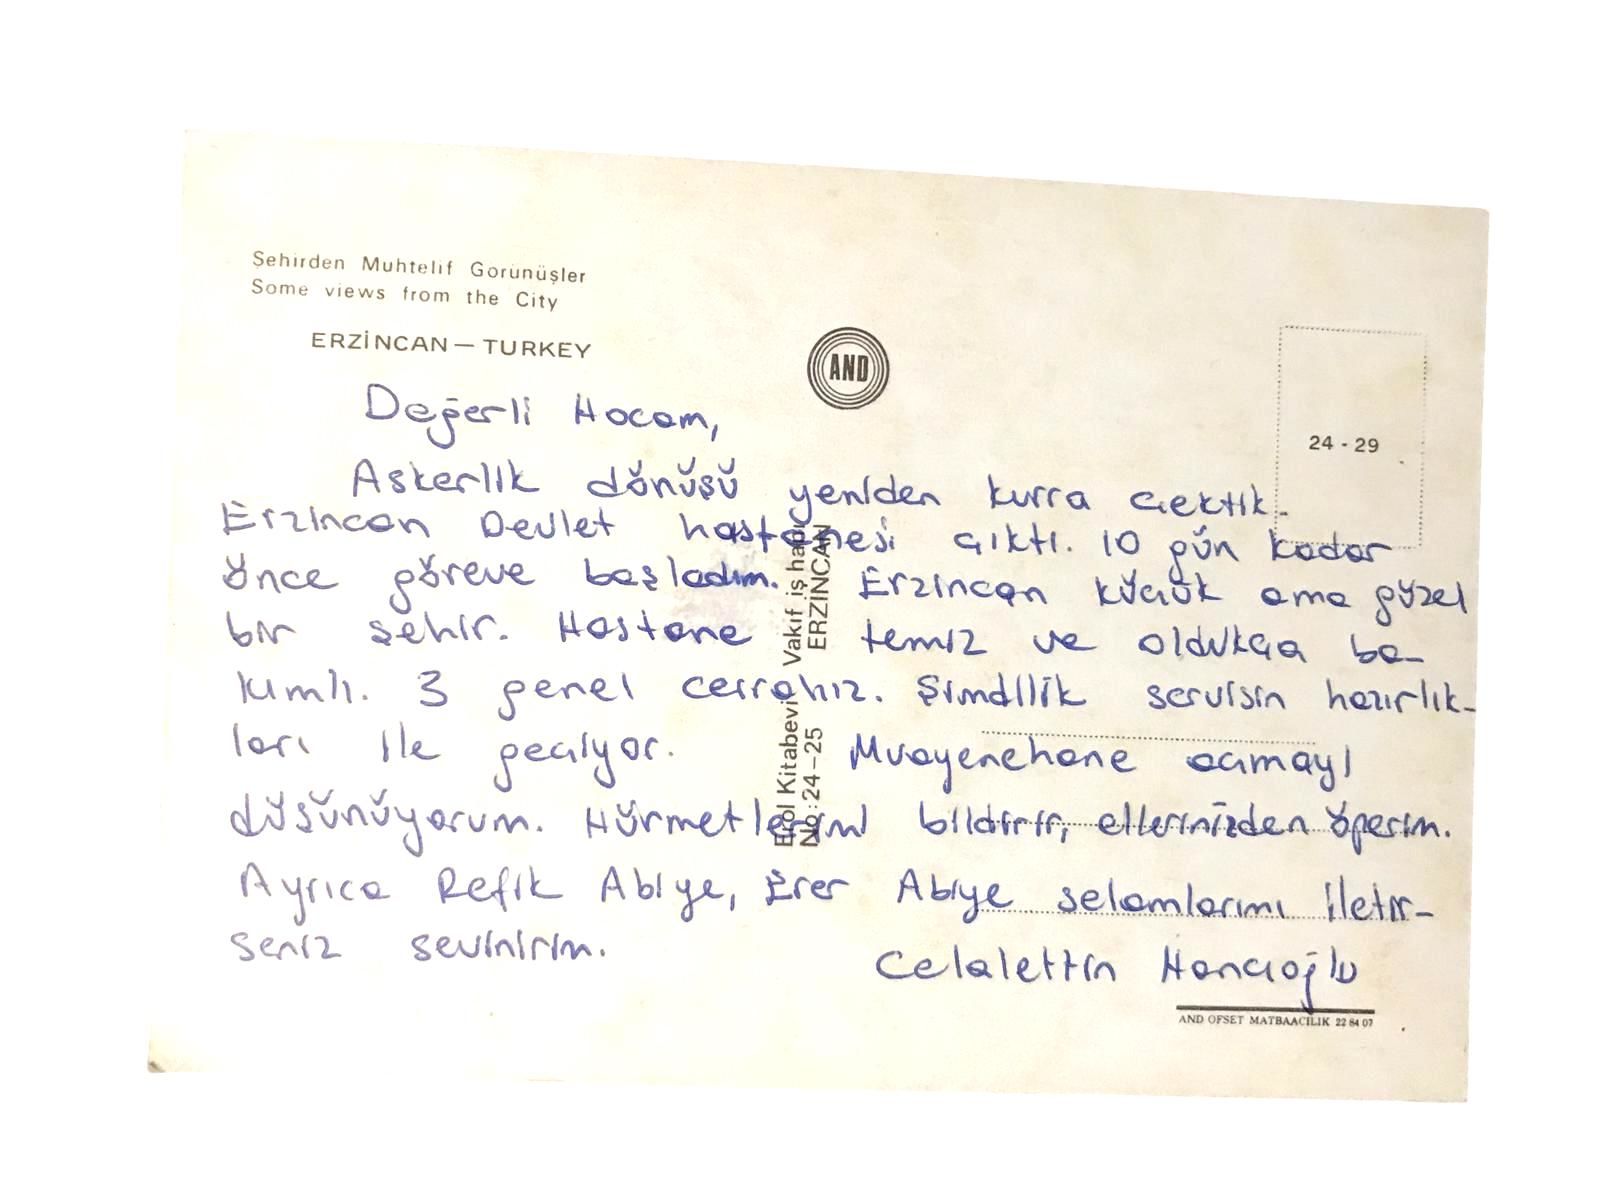 Şehirden Muhtelif Gorünüşler
Some views from the City
ERZİNCAN — TURKEY
AND
24 - 29
Değerli Hocam,
Askerlik dönüşü yeniden kurra çektik.
Erzincan Devlet hastanesi çıktı. 10 gün kadar
önce göreve başladım. Erzincan küçük ama güzel
bir şehir. Hastane temiz ve oldukça ba-
kımlı. 3 genel cerrahız. Şimdilik servisin hazırlık-
ları ile geçiyor. Muayenehane açmayı
düşünüyorum. Hürmetlerimi bildirir, ellerinizden öperim.
Ayrıca Refik Abiye, Erer Abiye selamlarımı iletir-
seniz sevinirim.
Celalettin Hancıoğlu
Erol Kitabevi Vakıf iş hanı
No: 24-25 ERZİNCAN
AND OFSET MATBAACILIK 22 84 07